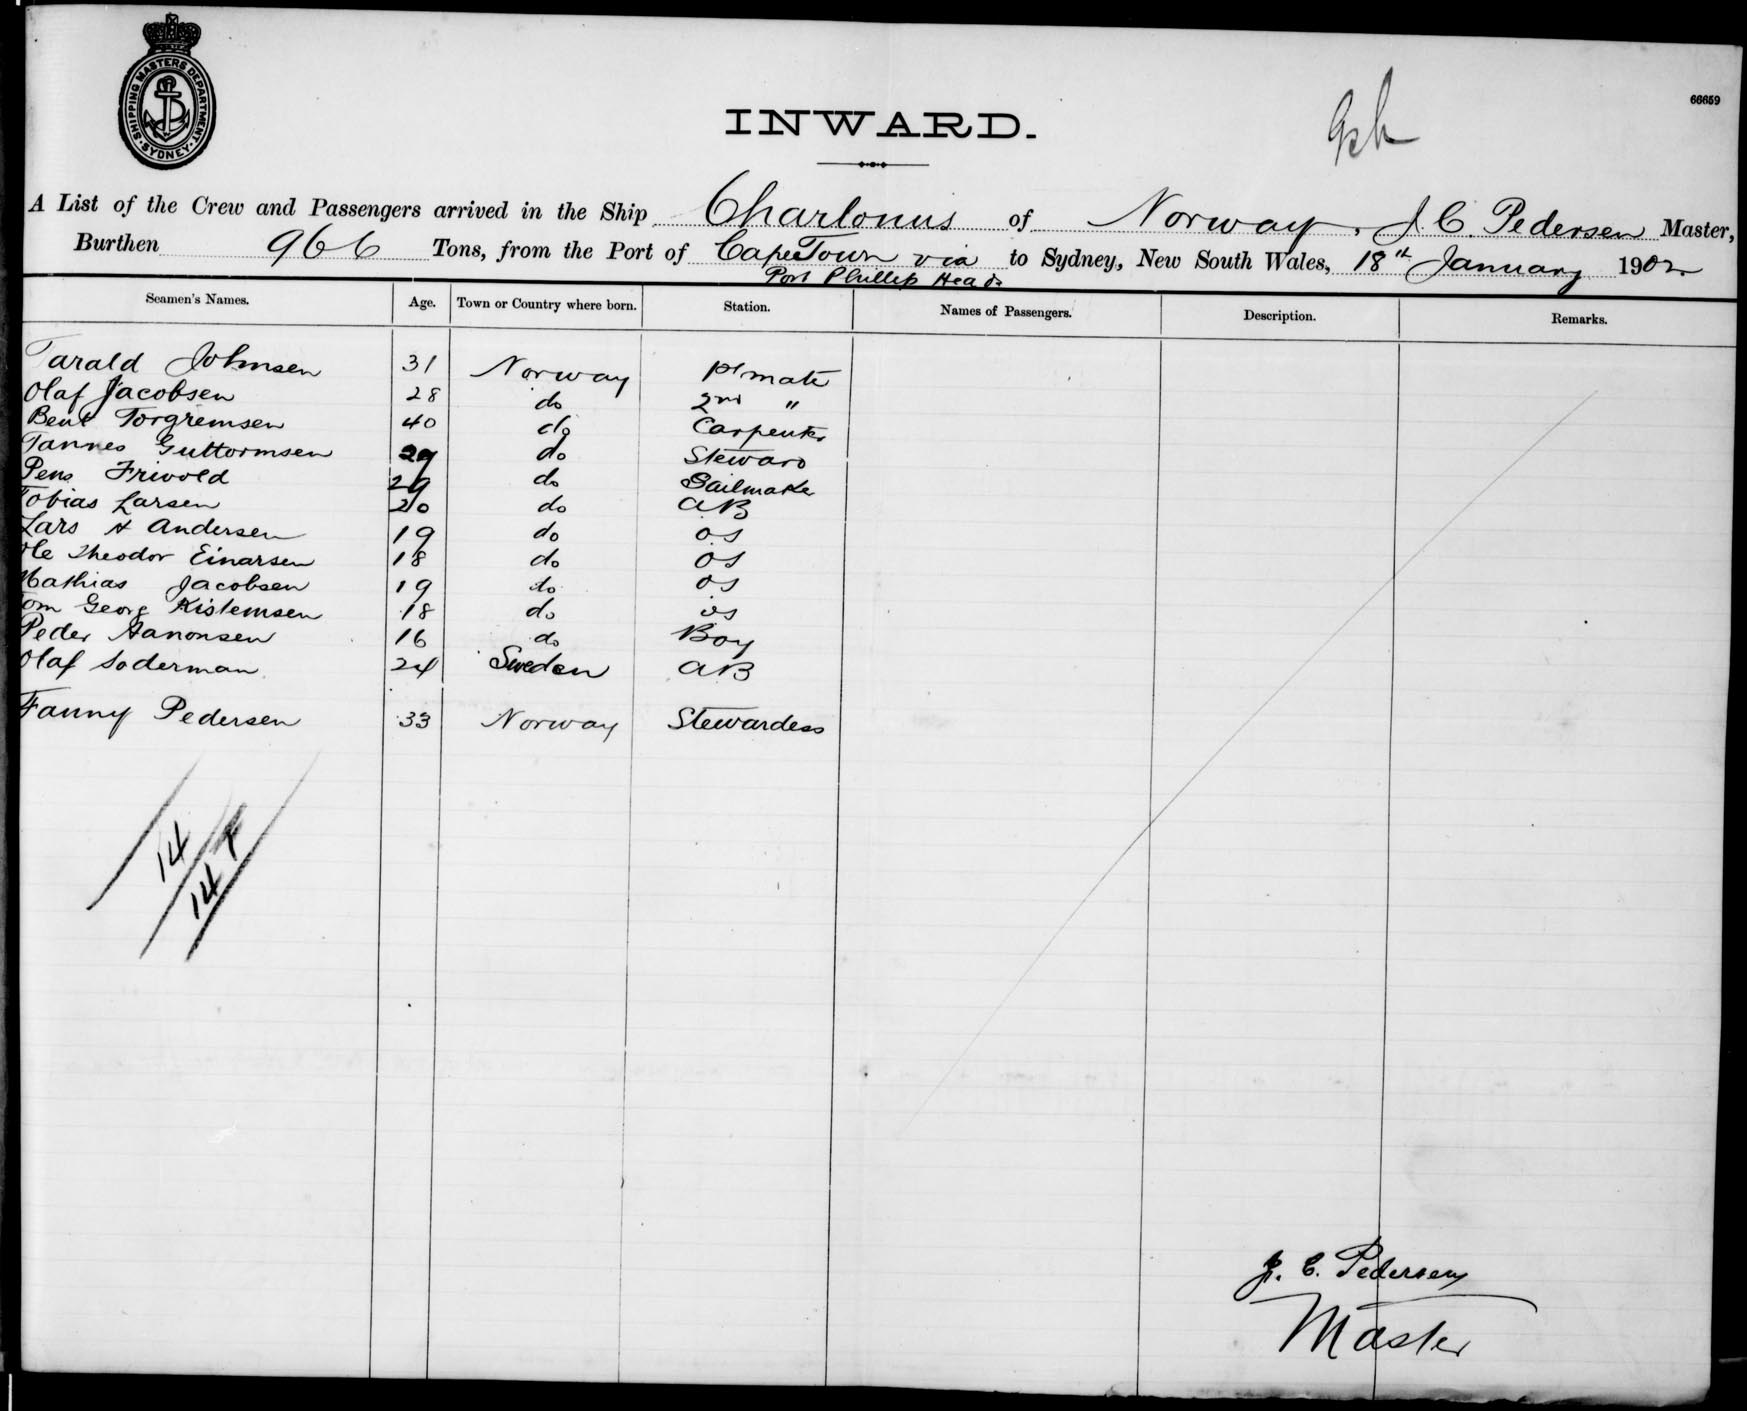 SHIPPING MASTERS DEPARTMENT
SYDNEY
66659
INWARD.
A List of the Crew and Passengers arrived in the Ship Charlonus of Norway, J. C. Pedersen Master,
Burthen 966 Tons, from the Port of Cape Town via to Sydney, New South Wales, 18th January 1902
Port Phillip Heads
Seamen's Names. Age. Town or Country where born. Station. Names of Passengers. Description. Remarks.
Tarald Johnsen 31 Norway 1st mate
Olaf Jacobsen 28 do 2nd "
Bent Torgremsen 40 do Carpenter
Tannes Guttormsen 29 do Steward
Pens Frivold 29 do Sailmaker
Tobias Larsen 20 do AB
Lars A Andersen 19 do OS
Ole Theodor Einarsen 18 do OS
Mathias Jacobsen 19 do OS
Tom Georg Kistemsen 18 do OS
Peder Aanonsen 16 do Boy
Olaf Soderman 24 Sweden AB
Fanny Pedersen 33 Norway Stewardess
14
14
J. C. Pedersen
Master